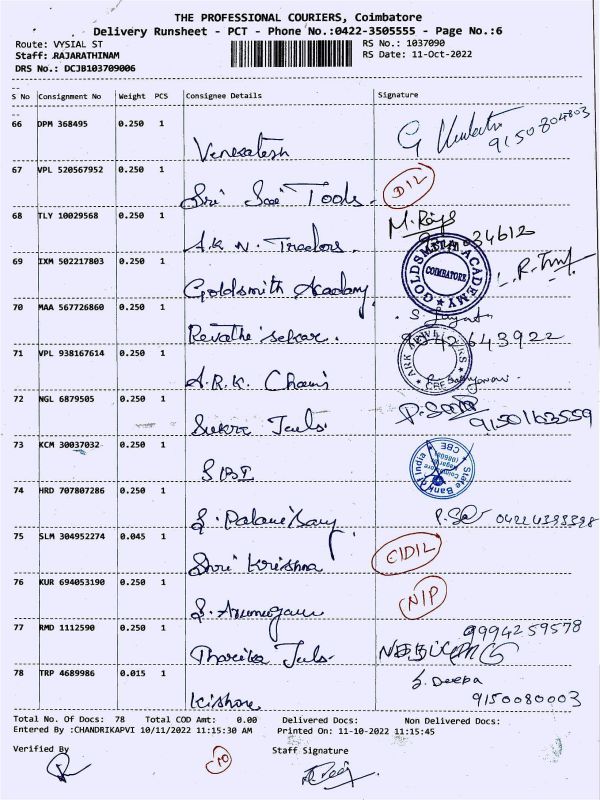 THE PROFESSIONAL COURIERS, Coimbatore
Delivery Runsheet - PCT - Phone No.:0422-3505555 - Page No.:6
Route: VYSIAL ST RS No.: 1037090
Staff: RAJARATHINAM RS Date: 11-Oct-2022
DRS No.: DCJB103709006
S No Consignment No Weight PCS Consignee Details Signature
66 DPM 368495 0.250 1
Venkatesh 9150804803
67 VPL 520567952 0.250 1
Sri Sai Tools. DIL
68 TLY 10029568 0.250 1
A.K.N. Traders. M. Raja
34612
69 IXM 502217803 0.250 1
Goldsmith Academy GOLDSMITH ACADEMY COIMBATORE
70 MAA 567726860 0.250 1
Revathi sekar. 9842643922
71 VPL 938167614 0.250 1
A.R.K.
72 NGL 6879505 0.250 1
9150163559
73 KCM 30037032 0.250 1
SBI State Bank of India CBE
74 HRD 707807286 0.250 1
S. Palanisamy
75 SLM 304952274 0.045 1
Shri Krishna
76 KUR 694053190 0.250 1
S. Arumugam NIP
77 RMD 1112590 0.250 1 9994259578
Tharika
78 TRP 4689986 0.015 1 S. Deepa
Kishore 9150080003
Total No. Of Docs: 78 Total COD Amt: 0.00 Delivered Docs: Non Delivered Docs:
Entered By :CHANDRIKAPVI 10/11/2022 11:15:30 AM Printed On: 11-10-2022 11:15:45
Verified By Staff Signature